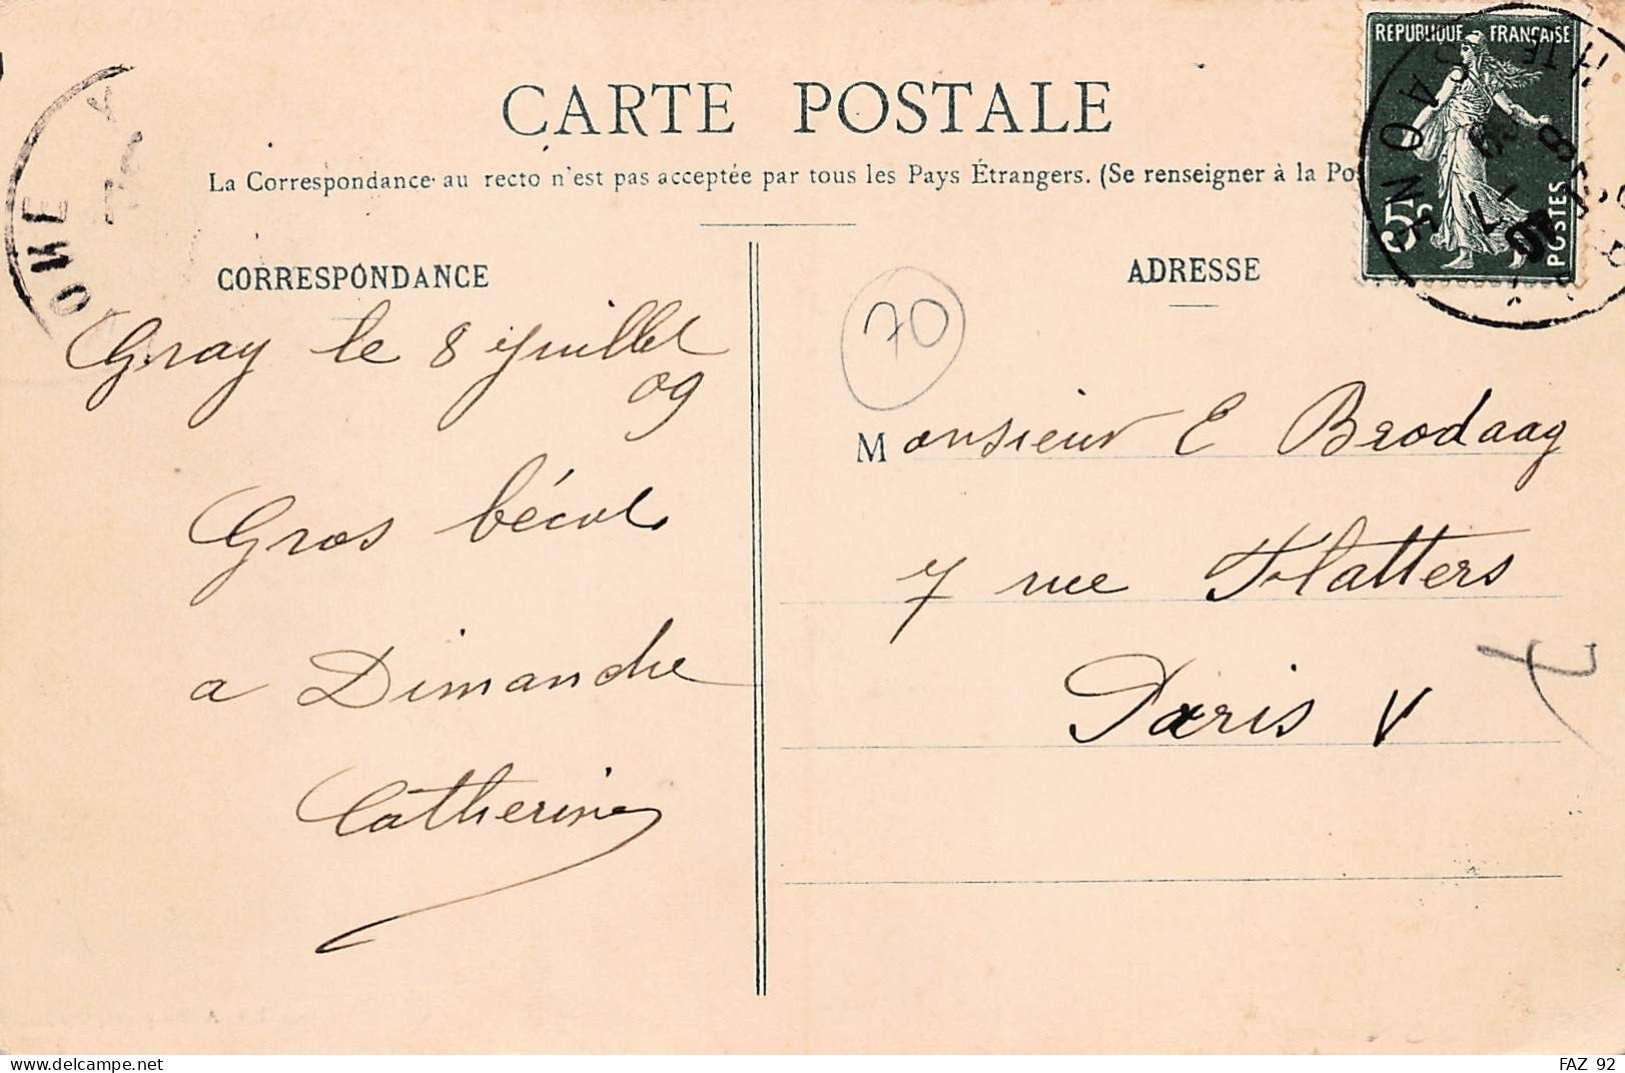 CARTE POSTALE
La Correspondance au recto n'est pas acceptée par tous les Pays Étrangers. (Se renseigner à la Pos
CORRESPONDANCE
Gray le 8 Juillet
09
Gros bécot
a Dimanche
Catherine
ADRESSE
70
Monsieur E Brodaag
7 rue Flatters
Paris V
REPUBLIQUE FRANÇAISE
5c
POSTES
HTE SAONE
8
09
ONE
FAZ 92